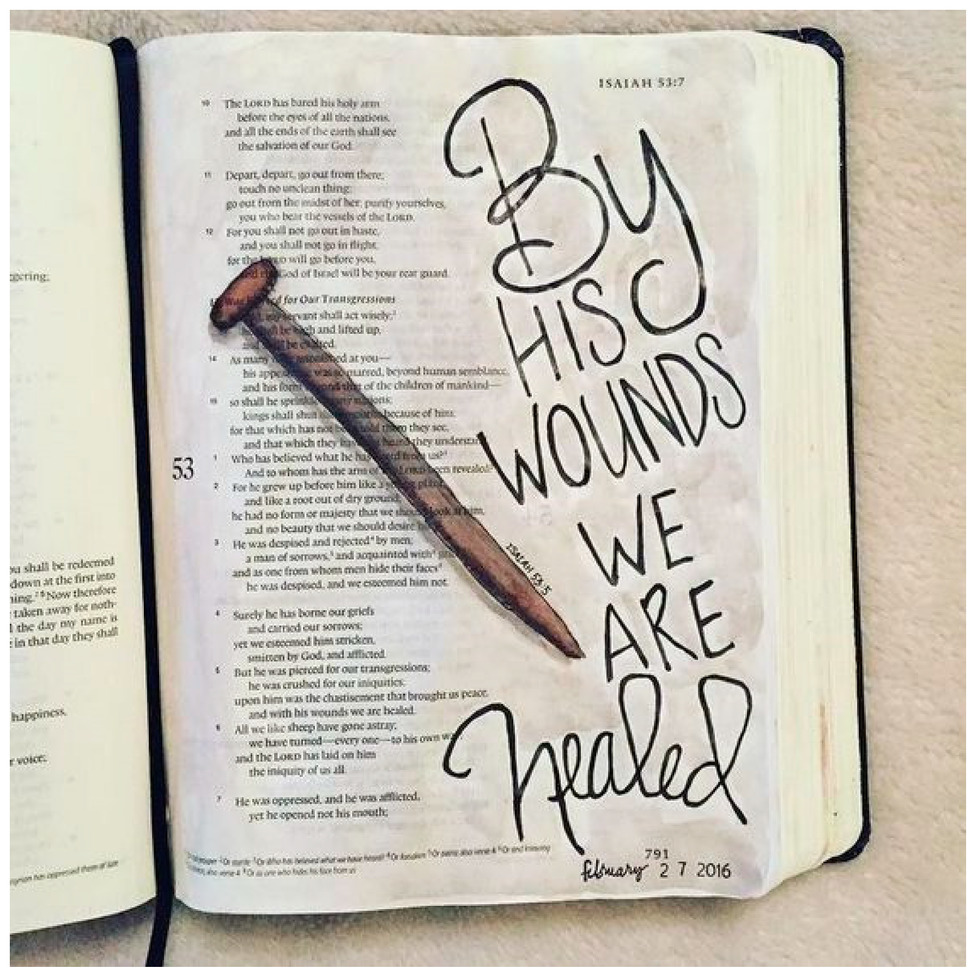 gering;
ou shall be redeemed
down at the first into
ing. 2 5 Now therefore
taken away for noth-
the day my name is
in that day they shall
happiness.
voice;
ISAIAH 53:7
10 The LORD has bared his holy arm
before the eyes of all the nations,
and all the ends of the earth shall see
the salvation of our God.
11 Depart, depart, go out from there;
touch no unclean thing;
go out from the midst of her; purify yourselves,
you who bear the vessels of the LORD.
12 For you shall not go out in haste,
and you shall not go in flight,
for the will go before you,
God of Israel will be your rear guard.
for Our Transgressions
servant shall act wisely;
be high and lifted up,
and be exalted.
14 As many at you—
his appearance was so marred, beyond human semblance,
and his form beyond that of the children of mankind—
15 so shall he sprinkle many nations;
kings shall shut because of him;
for that which has not been told them they see,
and that which they have heard they understand.
53
1 Who has believed what he has heard from us?
And to whom has the arm of the LORD been revealed?
2 For he grew up before him like a young plant,
and like a root out of dry ground;
he had no form or majesty that we should look at him,
and no beauty that we should desire
3 He was despised and rejected by men;
a man of sorrows, and acquainted with
and as one from whom men hide their faces
he was despised, and we esteemed him not.
4 Surely he has borne our griefs
and carried our sorrows;
yet we esteemed him stricken,
smitten by God, and afflicted.
5 But he was pierced for our transgressions;
he was crushed for our iniquities;
upon him was the chastisement that brought us peace,
and with his wounds we are healed.
6 All we like sheep have gone astray;
we have turned—every one—to his own
and the LORD has laid on him
the iniquity of us all.
7 He was oppressed, and he was afflicted,
yet he opened not his mouth;
ISAIAH 53:5
By
HIS
WOUNDS
WE
ARE
Healed
791
february 2 7 2016